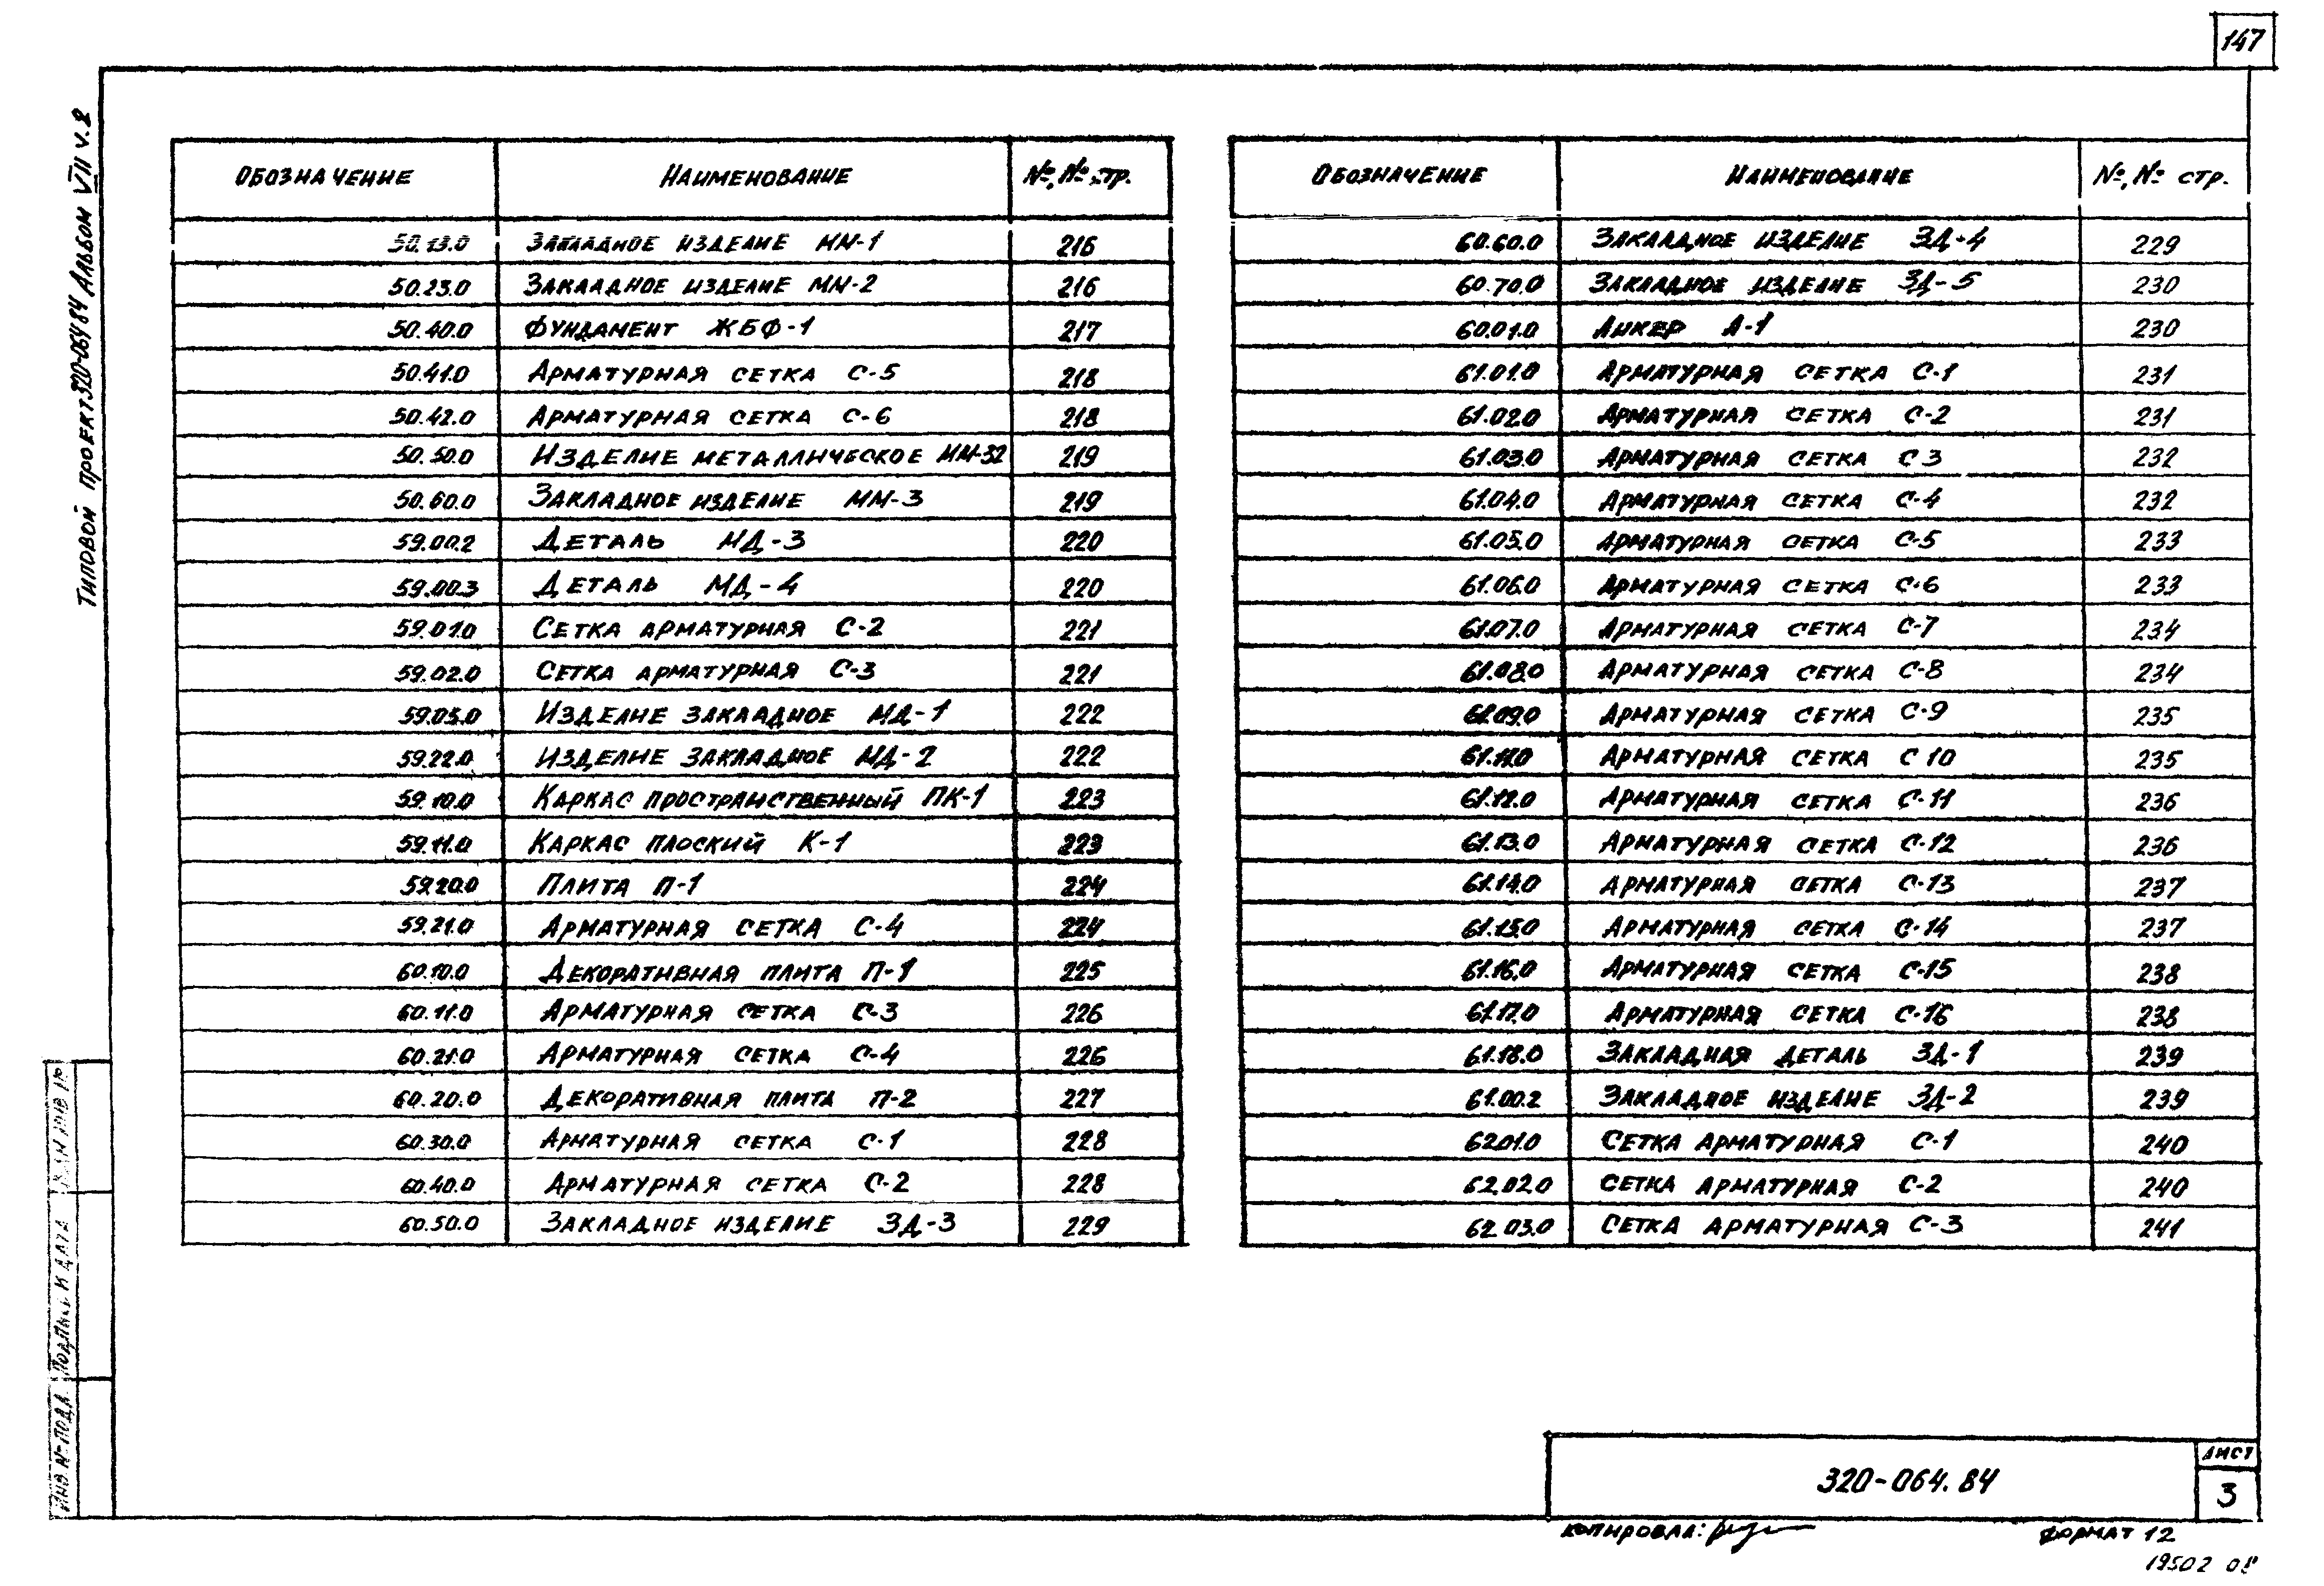 147
Типовой проект 320-064.84 Альбом VII ч. 2
Обозначение Наименование №,№ стр.
50.13.0 Закладное изделие МН-1 216
50.23.0 Закладное изделие МН-2 216
50.40.0 Фундамент ЖБФ-1 217
50.41.0 Арматурная сетка С-5 218
50.42.0 Арматурная сетка С-6 218
50.50.0 Изделие металлическое МН-32 219
50.60.0 Закладное изделие МН-3 219
59.00.2 Деталь МД-3 220
59.00.3 Деталь МД-4 220
59.01.0 Сетка арматурная С-2 221
59.02.0 Сетка арматурная С-3 221
59.05.0 Изделие закладное МД-1 222
59.22.0 Изделие закладное МД-2 222
59.10.0 Каркас пространственный ПК-1 223
59.11.0 Каркас плоский К-1 223
59.20.0 Плита П-1 224
59.21.0 Арматурная сетка С-4 224
60.10.0 Декоративная плита П-1 225
60.11.0 Арматурная сетка С-3 226
60.21.0 Арматурная сетка С-4 226
60.20.0 Декоративная плита П-2 227
60.30.0 Арматурная сетка С-1 228
60.40.0 Арматурная сетка С-2 228
60.50.0 Закладное изделие ЗД-3 229
Обозначение Наименование №,№ стр.
60.60.0 Закладное изделие ЗД-4 229
60.70.0 Закладное изделие ЗД-5 230
60.01.0 Анкер А-1 230
61.01.0 Арматурная сетка С-1 231
61.02.0 Арматурная сетка С-2 231
61.03.0 Арматурная сетка С 3 232
61.04.0 Арматурная сетка С-4 232
61.05.0 Арматурная сетка С-5 233
61.06.0 Арматурная сетка С-6 233
61.07.0 Арматурная сетка С-7 234
61.08.0 Арматурная сетка С-8 234
61.09.0 Арматурная сетка С-9 235
61.11.0 Арматурная сетка С 10 235
61.12.0 Арматурная сетка С-11 236
61.13.0 Арматурная сетка С-12 236
61.14.0 Арматурная сетка С-13 237
61.15.0 Арматурная сетка С-14 237
61.16.0 Арматурная сетка С-15 238
61.17.0 Арматурная сетка С-16 238
61.18.0 Закладная деталь ЗД-1 239
61.00.2 Закладное изделие ЗД-2 239
62.01.0 Сетка арматурная С-1 240
62.02.0 Сетка арматурная С-2 240
62.03.0 Сетка арматурная С-3 241
Инв № подл Подпись и дата
320-064.84
Лист
3
Копировал:
Формат 12
19502